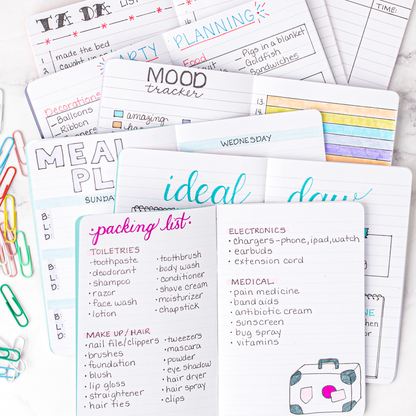 TA DA LIST
1 made the bed
TIME:
PARTY PLANNING
Food
Pigs in a blanket
Goldfish
Sandwiches
Decorations
Balloons
Ribbon
MOOD
tracker
amazing
13.
14.
WEDNESDAY
MEAL
PL
SUNDA
B:
L:
D:
B:
L:
D:
B:
L:
D:
ideal day
packing list.
TOILETRIES
• toothpaste
• deodorant
• shampoo
• razor
• face wash
• lotion
• toothbrush
• body wash
• conditioner
• shave cream
• moisturizer
• chapstick
MAKE UP / HAIR
• nail file/clippers
• brushes
• foundation
• blush
• lip gloss
• straightener
• hair ties
• tweezers
• mascara
• powder
• eye shadow
• hair dryer
• hair spray
• clips
ELECTRONICS
• chargers-phone, ipad, watch
• earbuds
• extension cord
MEDICAL
• pain medicine
• band aids
• antibiotic cream
• sunscreen
• bug spray
• vitamins